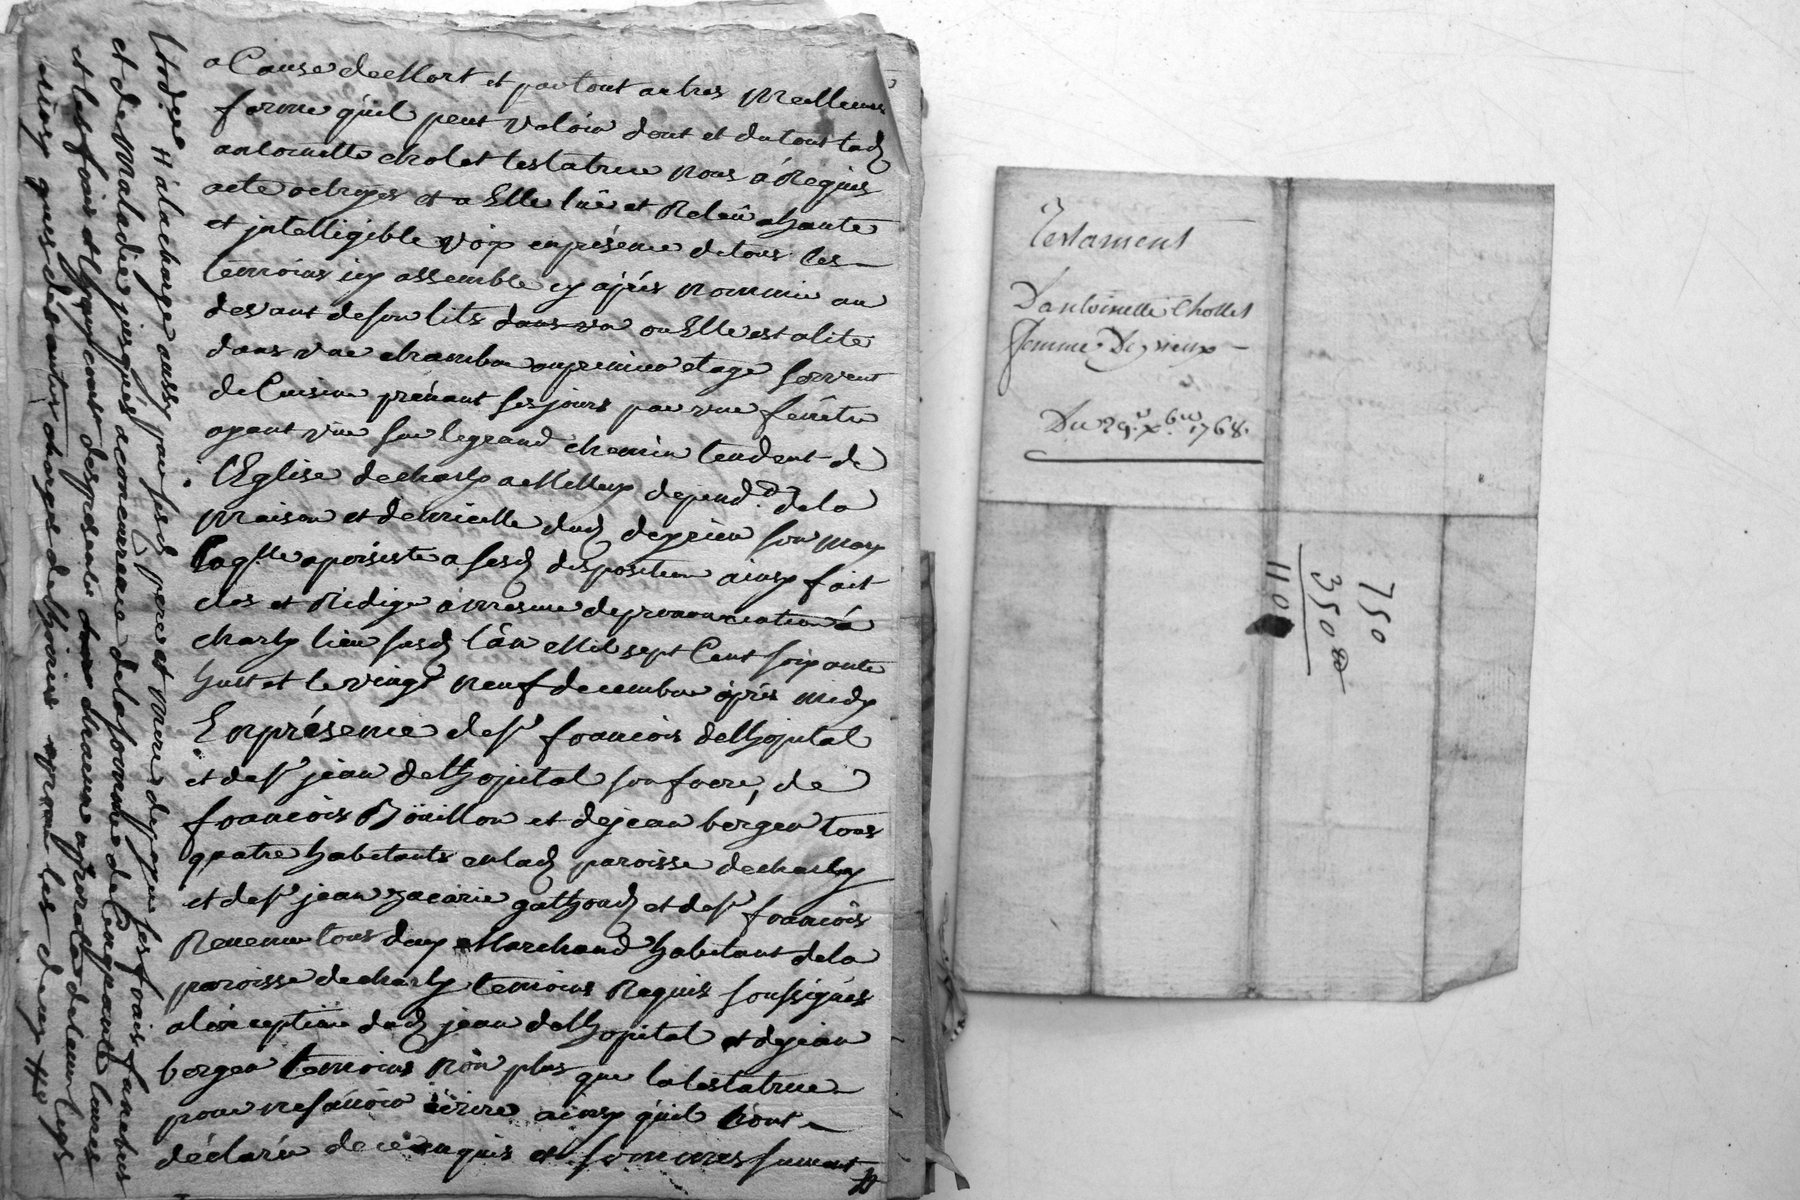 a Cause de Mort et par tout autres Meilleure
forme quil peut valoir dont et du tout lad
antoinette cholet testatrice nous á Requis
acte octroyes et a Elle lüe et Releüe a haute
et intelligible voix en présence de tous les
temoins icy assemble cy aprés nommée au
devant de son lits dans un ou Elle est alite
dans une chambre au premier etage servent
de Cuisine prénant ses jours par une fenétre
ayant vüe sur le grand chemin tendent de
l'Eglise de charly a Millery depend.te de la
maison et demicelle dud deyrieu son mary
laq.lle apersiste a sesd disposition ainsy fait
clos et Rédigé á mesure de prononciation á
charly lieu susd lán Mil sept Cent soixante
huit et le vingt neuf decembre aprés midy
En présence de s.r francois delhopital
et de s.r jean delhopital son frere, de
francois Boüillon et de jean berger tous
quatre habitants en lad paroisse de charly
et de s.r jean zacarie et de s.r francois
tous deux Marchand habitant de la
paroisse de charly temoins Requis soussignés
a l'exception dud jean delhopital et de jean
berger temoins nón plus que la testatrice
pour ne sávoir écrire ainsy quil l'ont
déclaré de ce enquis et sommes suivant
á la charge aussy par sesd pere et mere de payer ses frais funebres
et de maladie jusques a concurrance de la somme de Cinquante livres
et les frais et des presentes chacun au prorata de leur legs
ainsy que des autres charges
Testament
D'antoinette Chollet
femme Deyrieux
Du 29.e X.bre 1768.
750
350
110